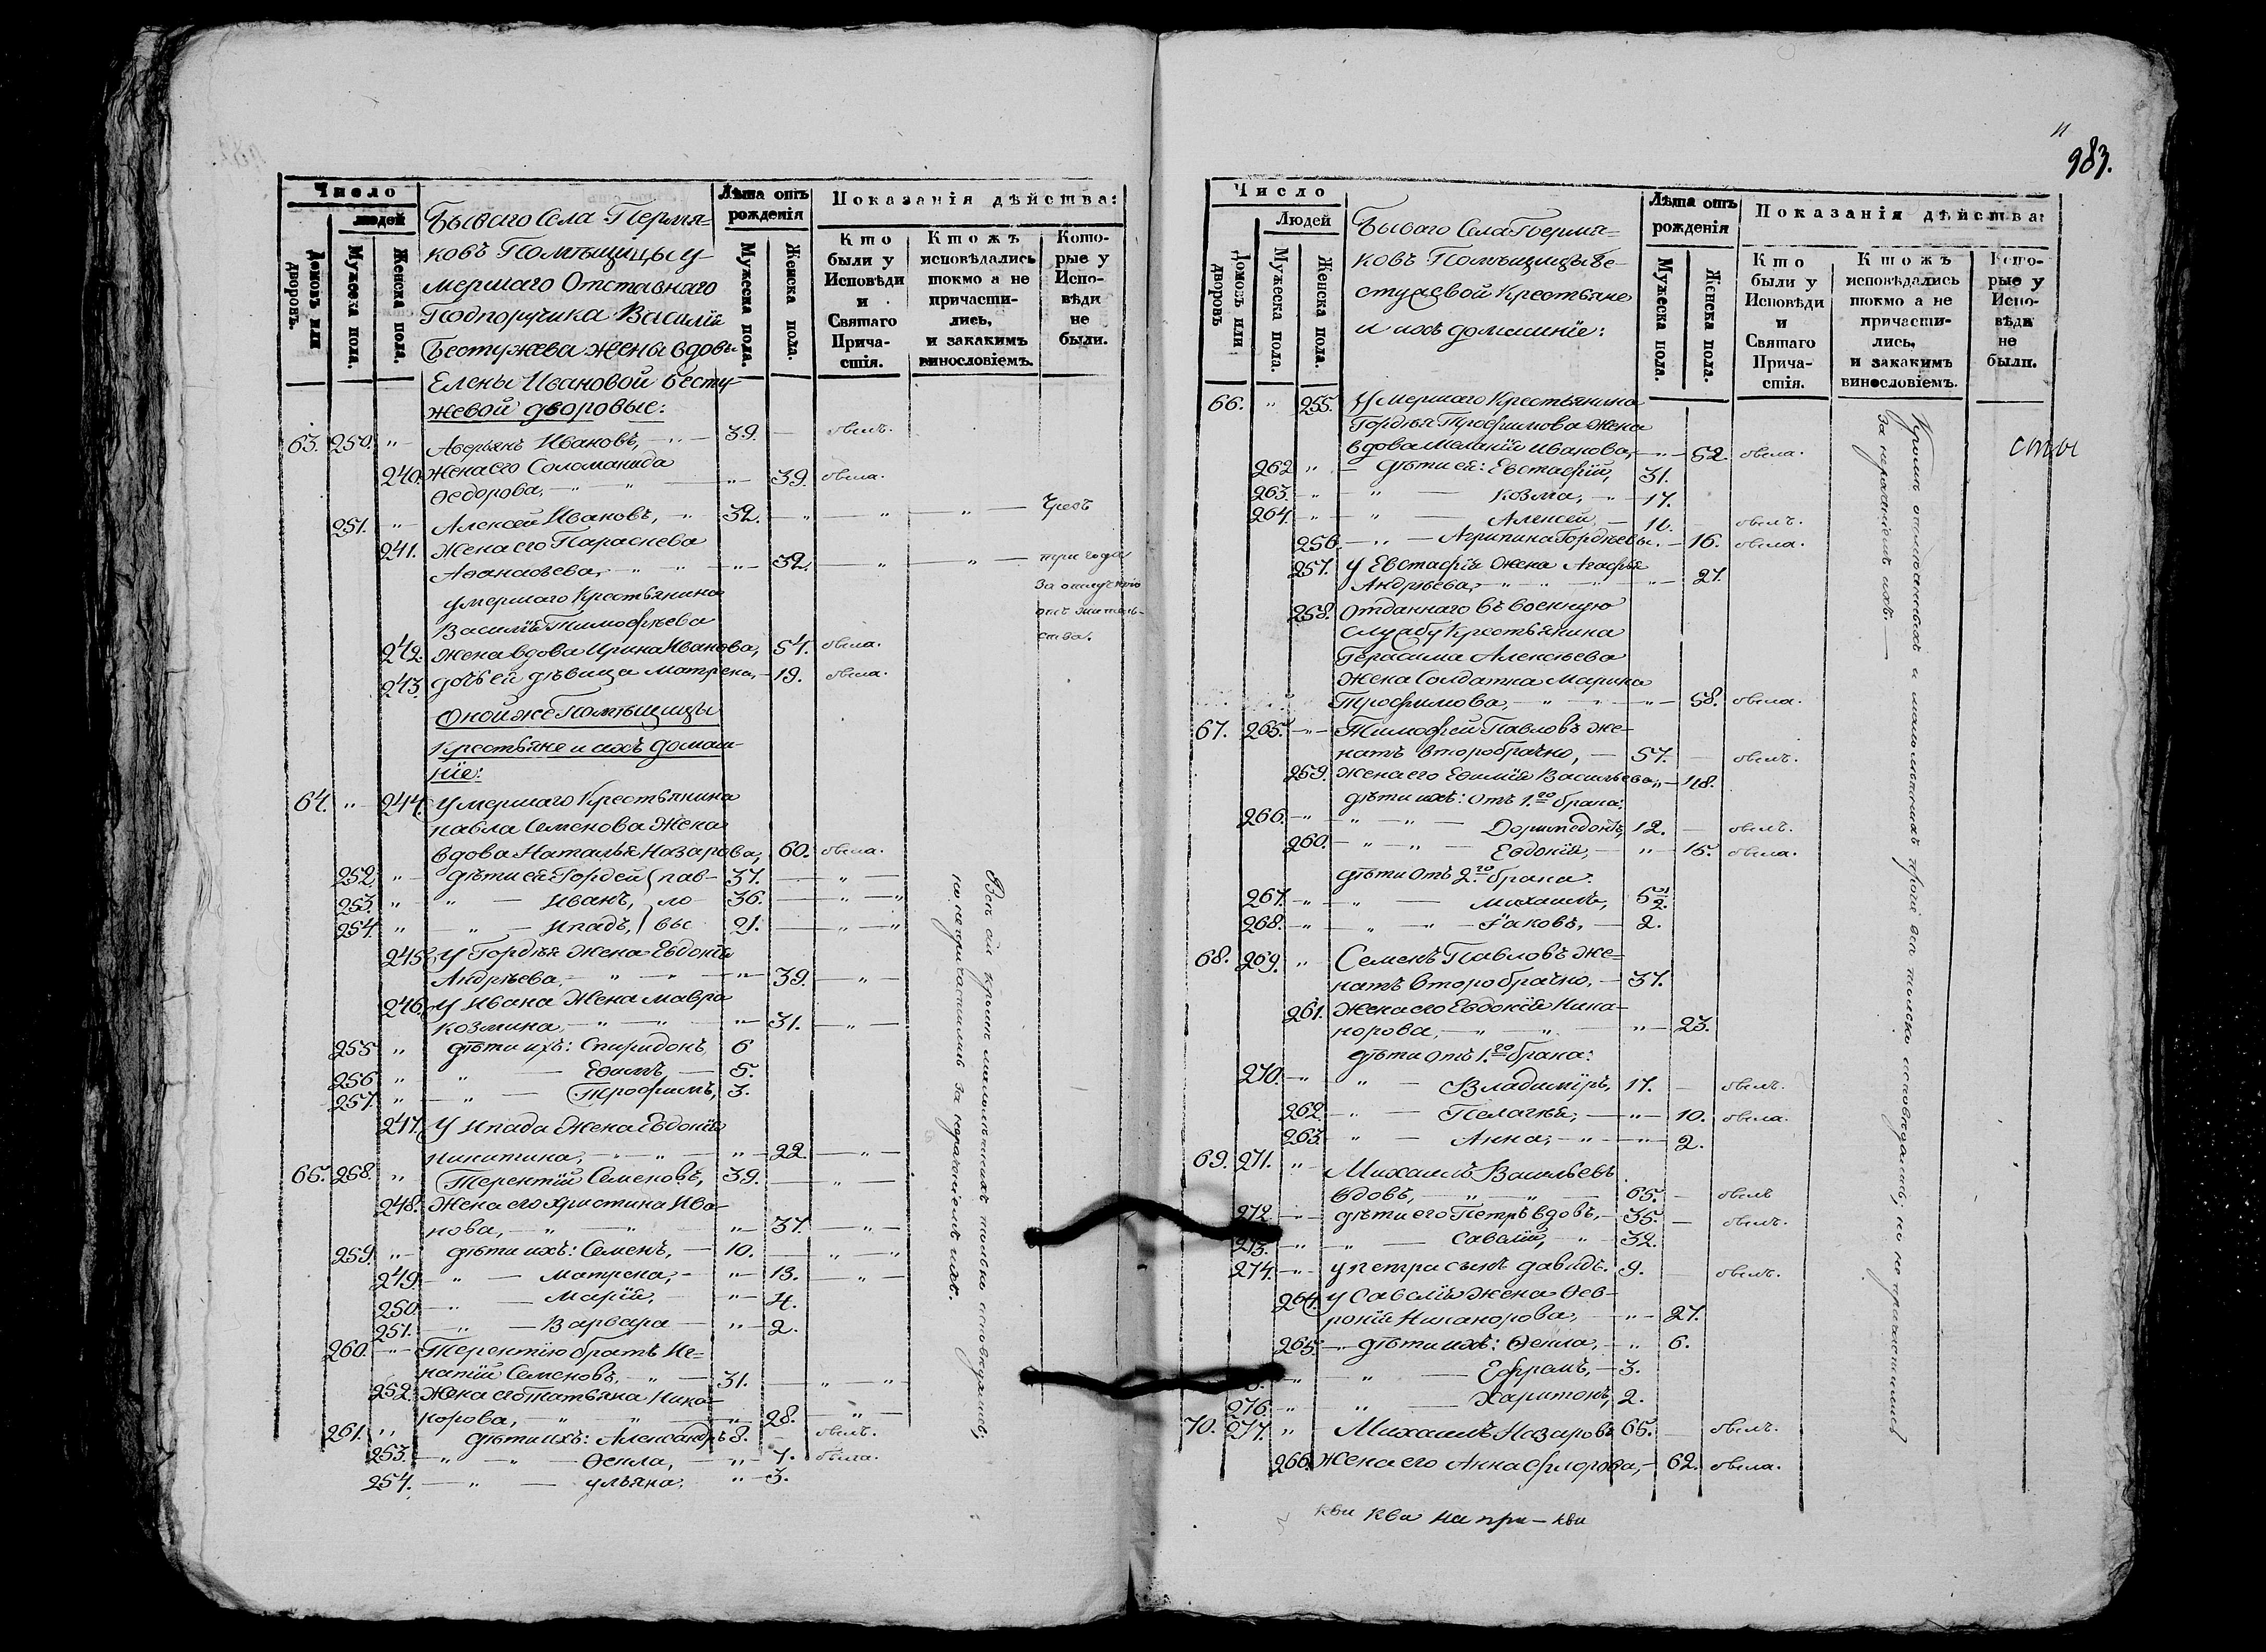 Число
людей
Домовъ или дворовъ.
Мужеска пола.
Женска пола.
Бываго Села Пермя-
ковъ Помѣщицы у-
мершаго Отставнаго
Подпоручика Василія
Бестужева жены вдовы
Елены Ивановой Бесту-
жевой дворовые:
Лѣта отъ рожденія
Мужеска пола.
Женска пола.
Показанія дѣйства:
Кто были у Исповѣди и Святаго Прича-стія.
Ктожъ исповѣдались токмо а не причасти-лись, и закакимъ винословіемъ.
Кото-рые у Испо-вѣди не были.
63. 250. " Аверьянъ Ивановъ, — " — 39. — былъ.
240. Жена его Соломанида
Ѳедорова, — " — " — 39. была.
251. " Алексей Ивановъ, — " 32. — " — " — " — Чрезъ
241. Жена его Параскева
Аѳанасьева, — " — " — 32. — " — " — три года
за отлучкою
умершаго Крестьянина
отъ житель-
Василья Тимофѣева
ства.
242. жена вдова Ирина Иванова, 54. была.
243. дочь ей дѣвица Матрена, — 19. была.
Оной же Помѣщицы
Крестьяне и ихъ домаш-
ніе:
64. " 244. Умершаго Крестьянина
Павла Семенова Жена
вдова Наталья Назарова, 60. была.
252. " дѣти ея: Гордей { пав- 37. — " —
253. " " — Иванъ, ло 36. — " — "
254. " — " — Ипадъ, } вы 21. — " — "
245. У Гордѣя Жена Евдокія
Андрѣева, — " — " — 39. — " —
246. У Ивана Жена Мавра
Козмина, — " — " — " — 31. — " —
255. " дѣти ихъ: Спиридонъ, 6
256. " " — Еѳимъ, — 5.
257. " — " — Трофимъ, 3.
247. У Ипада Жена Евдокія
Никитина, — " — " — " — 22. — " —
65. 258. " Терентій Семеновъ, 39. — " —
248. Жена его Христина Ива-
нова, — " — " — 37. — " —
259. " дѣти ихъ: Семенъ, — 10. — " — "
249. — " — Матрена, — " — 13. — " —
250. — " — Марія, — " — 4.
251. — " — Варвара — " — 2.
260. — " — Терентію братъ Иг-
натій Семеновъ, — " — 31. — " — "
252. Жена его Татьяна Ника-
норова, — " — " — " — 28. — " —
261. " дѣти ихъ: Александръ 8. — былъ.
253. — " — " — Ѳекла, — " — 7. была.
254. — " — Ульяна, " — 3.
Всѣ сіи кромѣ малолѣтнихъ только исповѣдались,
но не причастились за нераченіемъ ихъ.
11
983.
Число
Людей
Домовъ или дворовъ
Мужеска пола.
Женска пола.
Бываго Села Пермя-
ковъ Помѣщицы Бе-
стужевой Крестьяне
и ихъ домашніе:
Лѣта отъ рожденія
Мужеска пола.
Женска пола.
Показанія дѣйства:
Кто были у Исповѣди и Святаго Прича-стія.
Ктожъ исповѣдались токмо а не причасти-лись, и закакимъ винословіемъ.
Кото-рые у Испо-вѣди не были.
66. " 255. Умершаго Крестьянина
Гордѣя Трофимова Жена
вдова Меланія Иванова, — " — 52 была.
262. " — дѣти ея: Евстафій, 31.
263. — " — " — Козма, — " — 17.
264. — " — " — Алексей, — 11. — былъ.
256. — " — Агрипина Гордѣевы. — 16. была.
257. У Евстафія Жена Агафья
Андрѣева, — " — " — 27.
258. Отданнаго въ военную
службу Крестьянина
Герасима Алексѣева
Жена Солдатка Марина
Трофимова, — " — " — 58. была.
67. 265. — " — Тимофей Павловъ же-
натъ второбрачно, — 57. — былъ.
259. Жена его Еѳимія Васильева, " — 48.
дѣти ихъ: отъ 1.го брака:
266. — " — " — Доримедонтъ, 12. — былъ.
260. — " — " — Евдокія, — " — 15. была.
дѣти отъ 2.го брака:
267. — " — " — Михаилъ, 5 1/2.
268. — " — " — Іаковъ, — 2.
68. 269. " Семенъ Павловъ же-
натъ второбрачно, — 37.
261. Жена его Евдокія Ника-
норова, — " — " — " — 23.
дѣти отъ 1.го брака:
270. — " " — Владиміръ, 17. — былъ.
262. — " — Пелагія, — " — 10. была.
263. — " — Анна, — " — 2.
69. 271. " — Михаилъ Васильевъ
вдовъ, — " — " — 65. — былъ
272. — " — дѣти его Петръ вдовъ, — 35. — былъ.
273. — " — " — Савелій, — " 32.
274. — " — у Петра сынъ Давидъ. 9. — былъ.
264. у Савелія Жена Ѳев-
ронія Никанорова, — " — 27.
265. — " — дѣти ихъ: Ѳекла, — " 6.
— " — " — Ефремъ, — 3.
276. — " " — Харитонъ, 2.
70. 277. " — Михаилъ Назаровъ 65. — былъ.
266. Жена его Анна Флорова, — 62. была.
Кромѣ отмѣченныхъ и малолѣтнихъ прочіе всѣ только исповѣдались, но не причастились
за нераченіемъ ихъ. —
сты
кви кви на при — кви